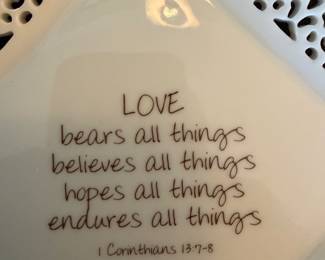 LOVE
bears all things
believes all things
hopes all things
endures all things
1 Corinthians 13:7-8